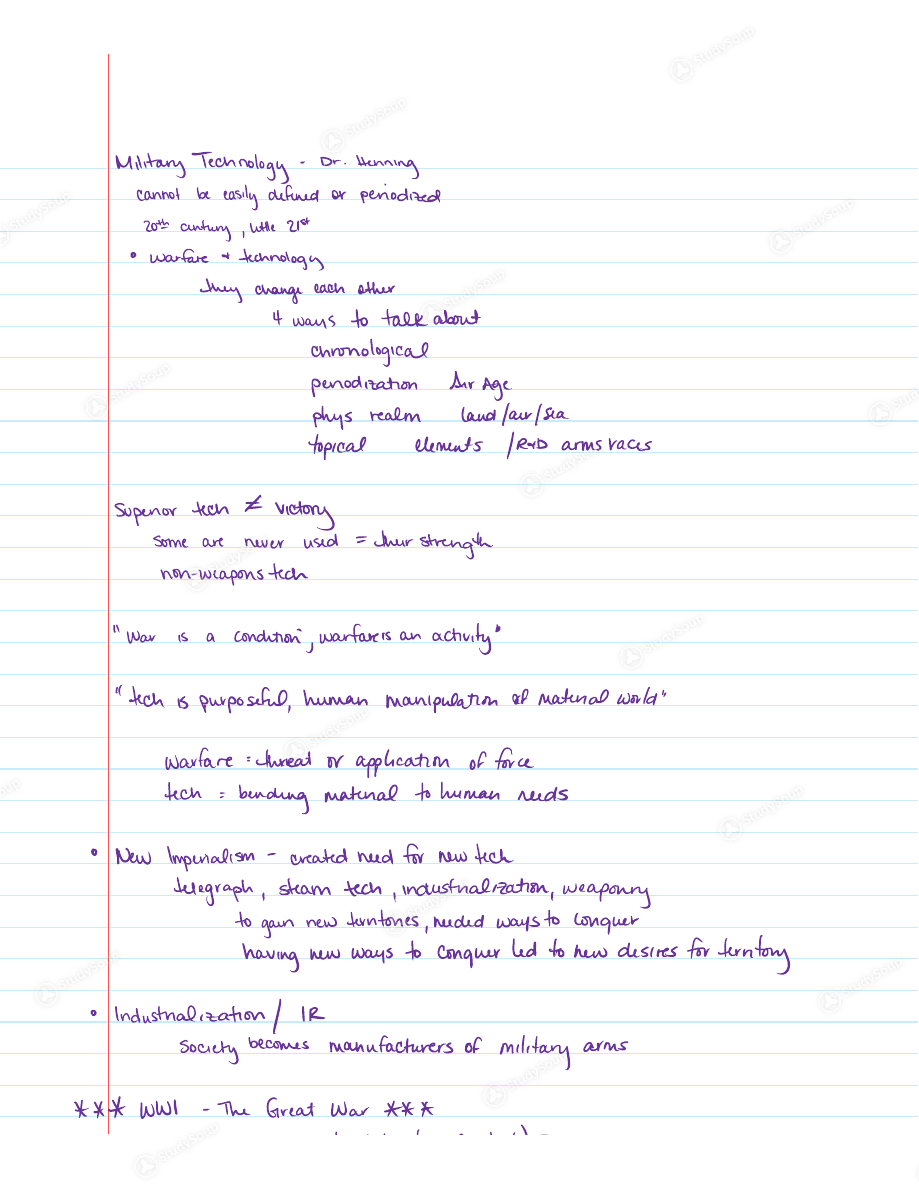 Military Technology - Dr. Henning
cannot be easily defined or periodized
20th century, little 21st
• Warfare + technology
they change each other
4 ways to talk about
chronological
periodization Air Age
phys realm land/air/sea
topical elements /R+D arms races
Superior tech ≠ victory
some are never used = their strength
non-weapons tech
"War is a condition, warfare is an activity"
"tech is purposeful, human manipulation of material world"
warfare = threat or application of force
tech = bending material to human needs
• New Imperialism - created need for new tech
telegraph, steam tech, industrialization, weaponry
to gain new territories, needed ways to conquer
having new ways to conquer led to new desires for territory
• Industrialization / IR
Society becomes manufacturers of military arms
*** WWI - The Great War ***
StudySoup